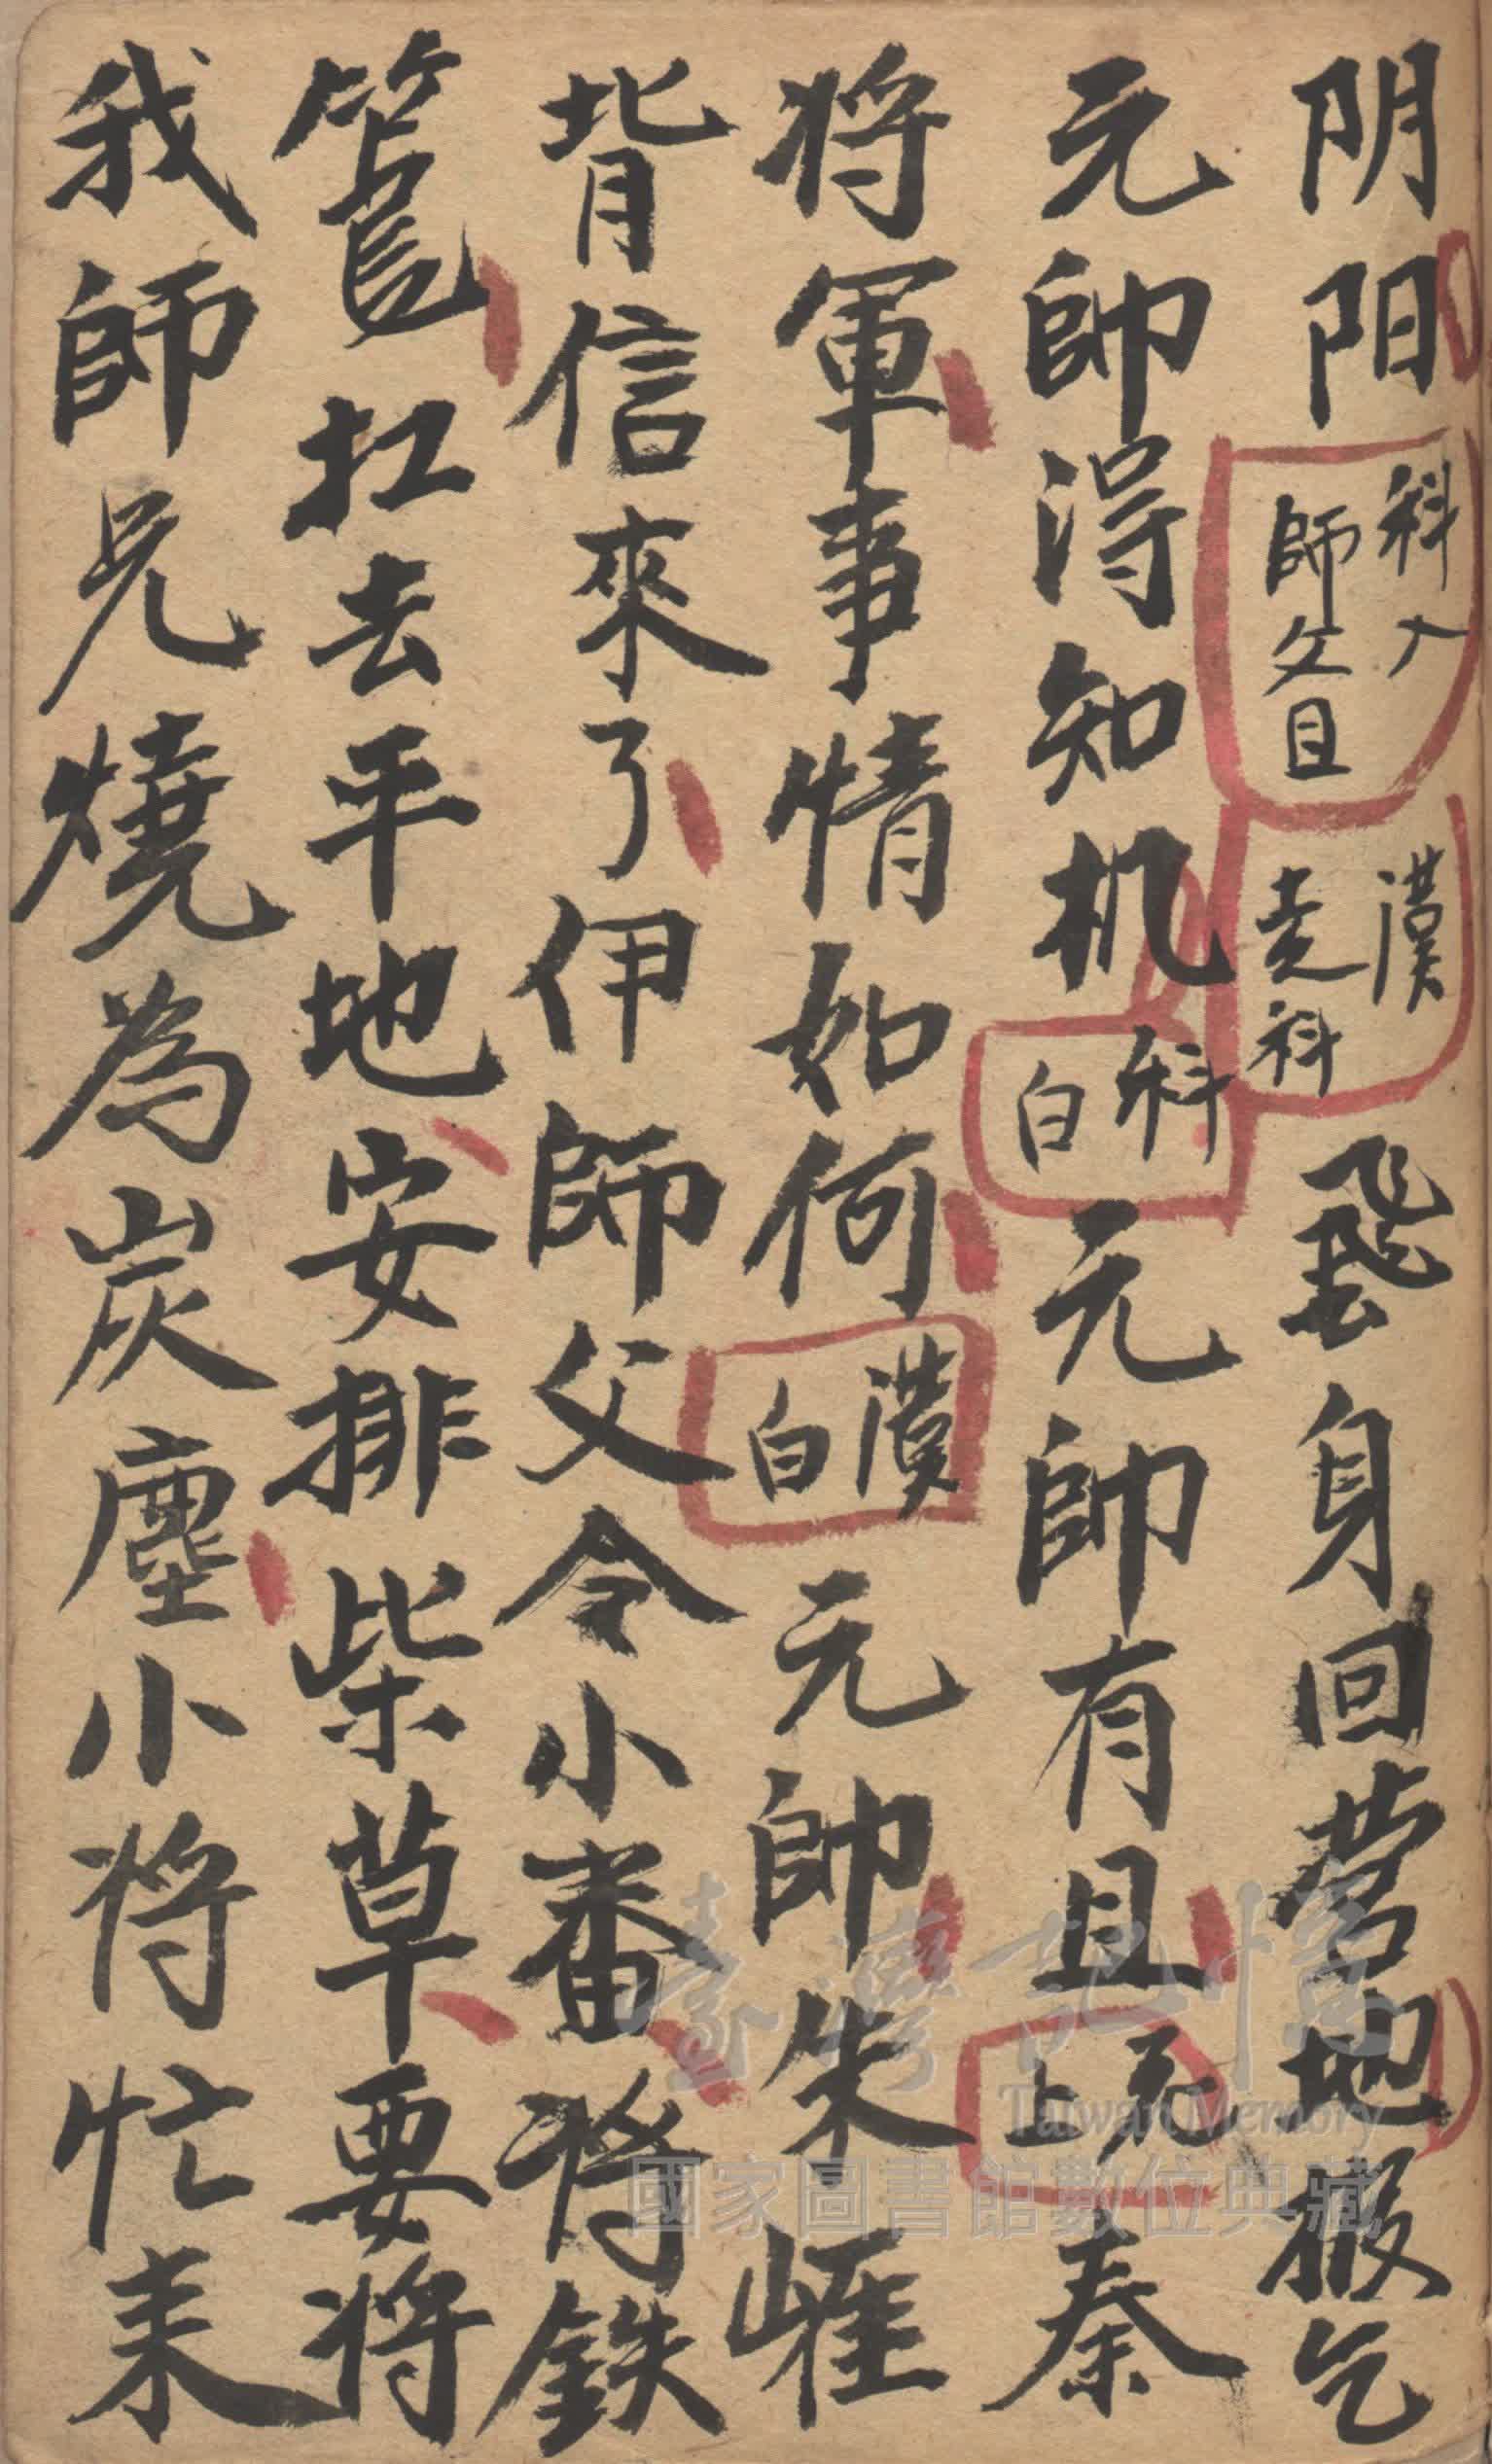 阴阳科入師父且漢走科飛身回营地搬乞
元帥淂知机科白元帥有且元上秦
将軍事情如何漢白元帥朱崕
背信來了伊師父令小番将鉄
篱扛去平地安排柴草要将
我師兄燒為炭塵小将忙来
臺灣記憶
Taiwan Memory
國家圖書館數位典藏